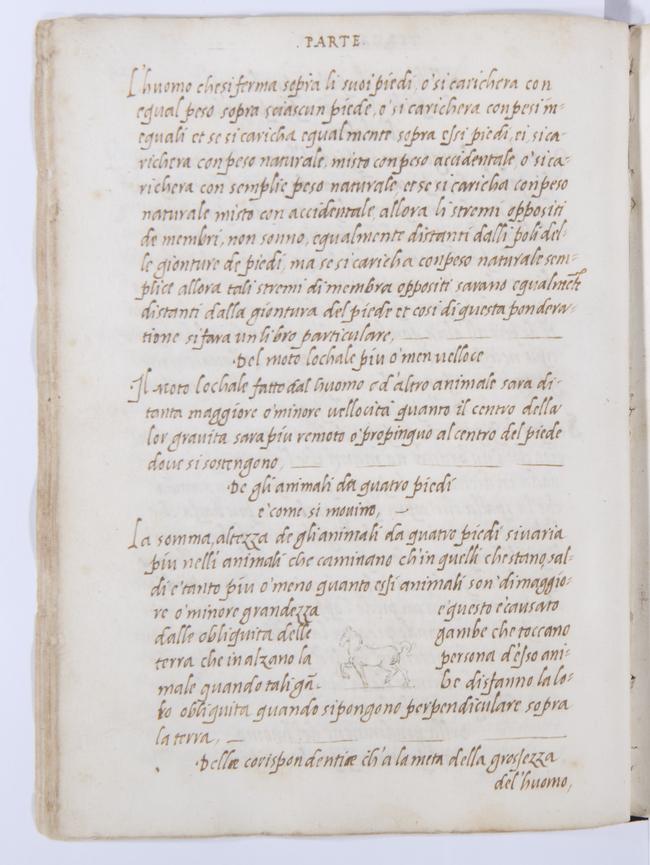 . PARTE.
L'huomo che si ferma sopra li suoi piedi, o' si carichera con
equal peso sopra sciascun piede, o' si carichera con pesi in=
equali et se si caricha equalmente sopra essi piedi, ei, si ca=
richera con peso naturale, misto con peso accidentale, o' si ca=
richera con semplie peso naturale, et se si caricha con peso
naturale misto con accidentale, allora li stremi oppositi
de membri, non sonno, equalmente distanti dalli poli del=
le gionture de piedi, ma se si caricha con peso naturale sem=
plice allora tali stremi di membra oppositi sarano equalmẽte
distanti dalla giontura del piede et cosi di questa pondera=
tione si fara un libro particulare,
Del moto lochale piu o' men velloce
Il moto lochale fatto dal huomo e d'altro animale sara di=
tanta maggiore o' minore vellocità quanto il centro della
lor gravita sara piu remoto o' propinquo al centro del piede
dove si sostengono,
De gli animali da quatro piedi
e' come si movino,
La somma, altezza de gli animali da quatro piedi si varia
piu nelli animali che caminano ch'in quelli che stano, sal=
di e' tanto piu o' meno quanto essi animali son' di maggio=
re o' minore grandezza e' questo e' causato
dalle obliquita delle gambe che toccano
terra che in alzano la persona d'esso ani=
male quando tali gã= be disfanno la lo=
ro obliquita quando si pongono perpendiculare sopra
la terra,
Dellæ corispondentiæ ch'a la meta della grossezza
del'huomo,